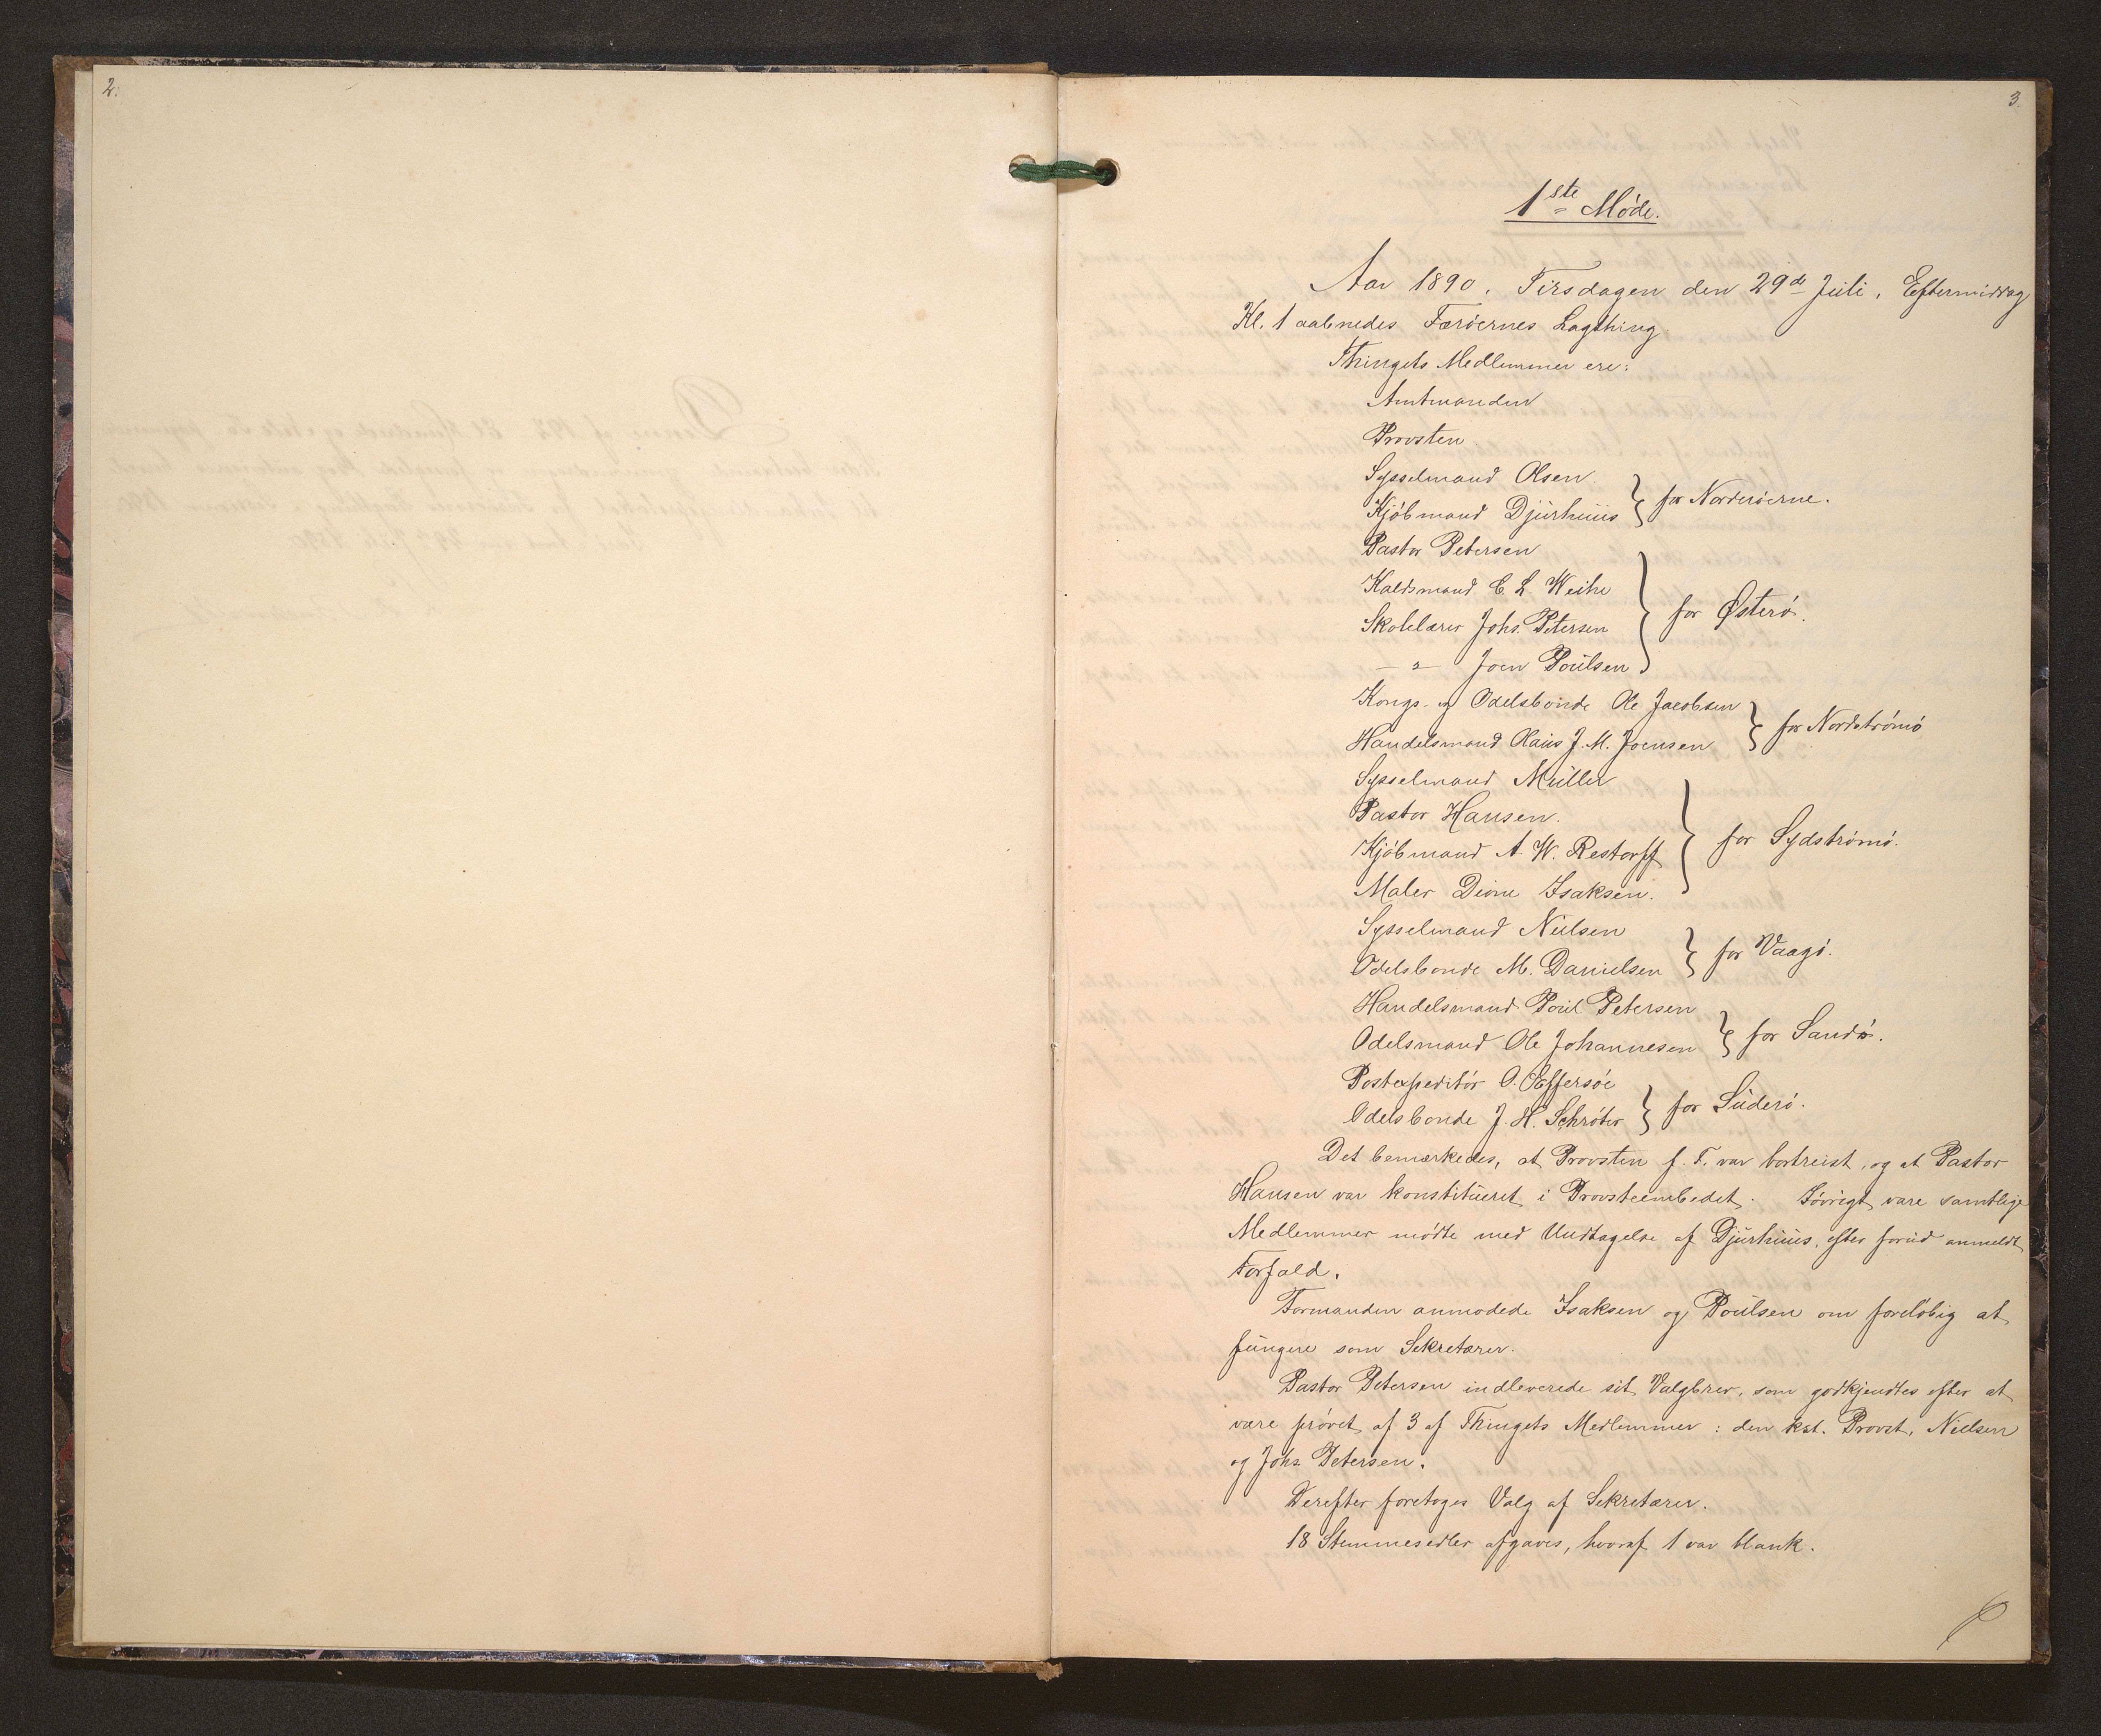 2.
3.
1ste Møde.
Aar 1890, Tirsdagen den 29de Juli, Eftermiddag
Kl. 1 aabnedes Færöernes Lagthing
Thingets Medlemmer ere:
Amtmanden
Provsten
Sysselmand Olsen
Kjöbmand Djurhuus } for Norderöerne.
Pastor Petersen
Kaldsmand C. L. Weihe
Skolelærer Johs. Petersen } for Østerö.
— " — Joen Poulsen
Kongs- og Odelsbonde Ole Jacobsen
Handelsmand Claus J. M. Joensen } for Nordströmö
Sysselmand Müller
Pastor Hansen.
Kjöbmand A. W. Restorff } for Sydströmö.
Maler Dione Isaksen.
Sysselmand Nielsen
Odelsbonde M. Danielsen } for Vaagö.
Handelsmand Poul Petersen
Odelsmand Ole Johannesen } for Sandö.
Postexpeditör O. Effersöe
Odelsbonde J. H. Schröter } for Suderö.
Det bemærkedes, at Provsten f. T. var bortreist, og at Pastor
Hansen var konstitueret i Provsteembedet. Iövrigt vare samtlige
Medlemmer mödte med Undtagelse af Djurhuus, efter forud anmeldt
Forfald.
Formanden anmodede Isaksen og Poulsen om forelöbig at
fungere som Sekretærer.
Pastor Petersen indleverede sit Valgbrev, som godkjendtes efter at
være prövet af 3 af Thingets Medlemmer: den kst. Provst, Nielsen
og Johs Petersen.
Derefter foretoges Valg af Sekretærer.
18 Stemmesedler afgaves, hvoraf 1 var blank.